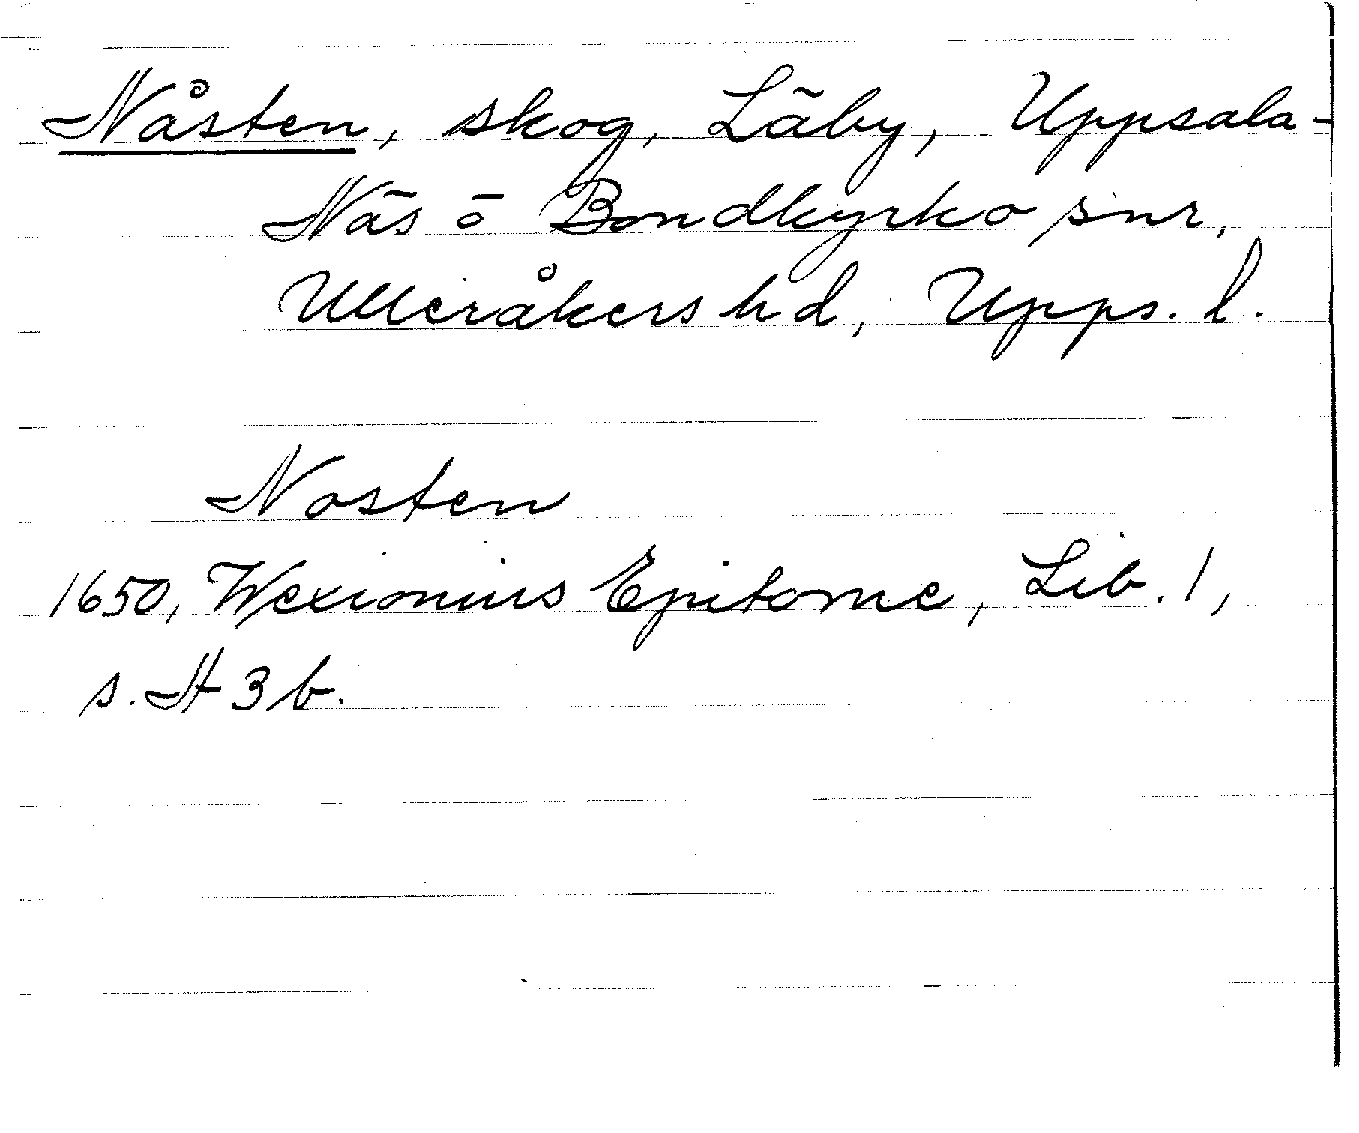 Nåsten, skog, Läby, Uppsala-
Näs o Bondkyrko snr,
Ulleråkers hd, Upps. l.
Nosten
1650, Wexionius Epitome, Lib. 1,
s. H 3 b.